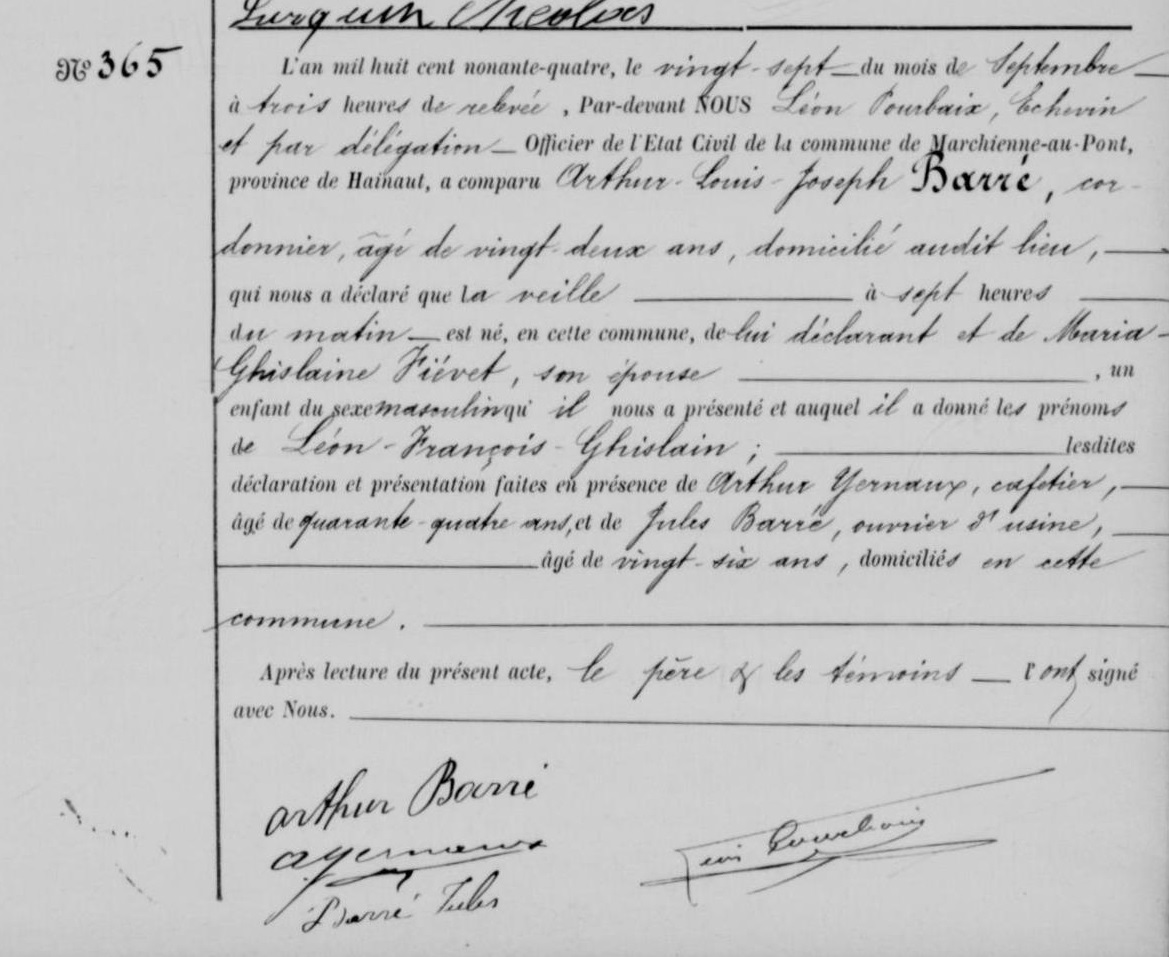 Lurquin Nicolas
No 365
L'an mil huit cent nonante-quatre, le vingt-sept du mois de Septembre
à trois heures de relevée, Par-devant NOUS Léon Pourbaix, Echevin
et par délégation Officier de l'Etat Civil de la commune de Marchienne-au-Pont,
province de Hainaut, a comparu Arthur-Louis-Joseph Barré, cor-
donnier, âgé de vingt-deux ans, domicilié audit lieu,
qui nous a déclaré que la veille à sept heures
du matin est né, en cette commune, de lui déclarant et de Maria-
Ghislaine Fiévet, son épouse, un
enfant du sexe masculin qu'il nous a présenté et auquel il a donné les prénoms
de Léon-François-Ghislain; lesdites
déclaration et présentation faites en présence de Arthur Yernaux, cafetier,
âgé de quarante-quatre ans, et de Jules Barré, ouvrier d'usine,
âgé de vingt-six ans, domiciliés en cette
commune.
Après lecture du présent acte, le père & les témoins l'ont signé
avec Nous.
arthur Barré
aYernaux
Barré Jules
Léon Pourbaix